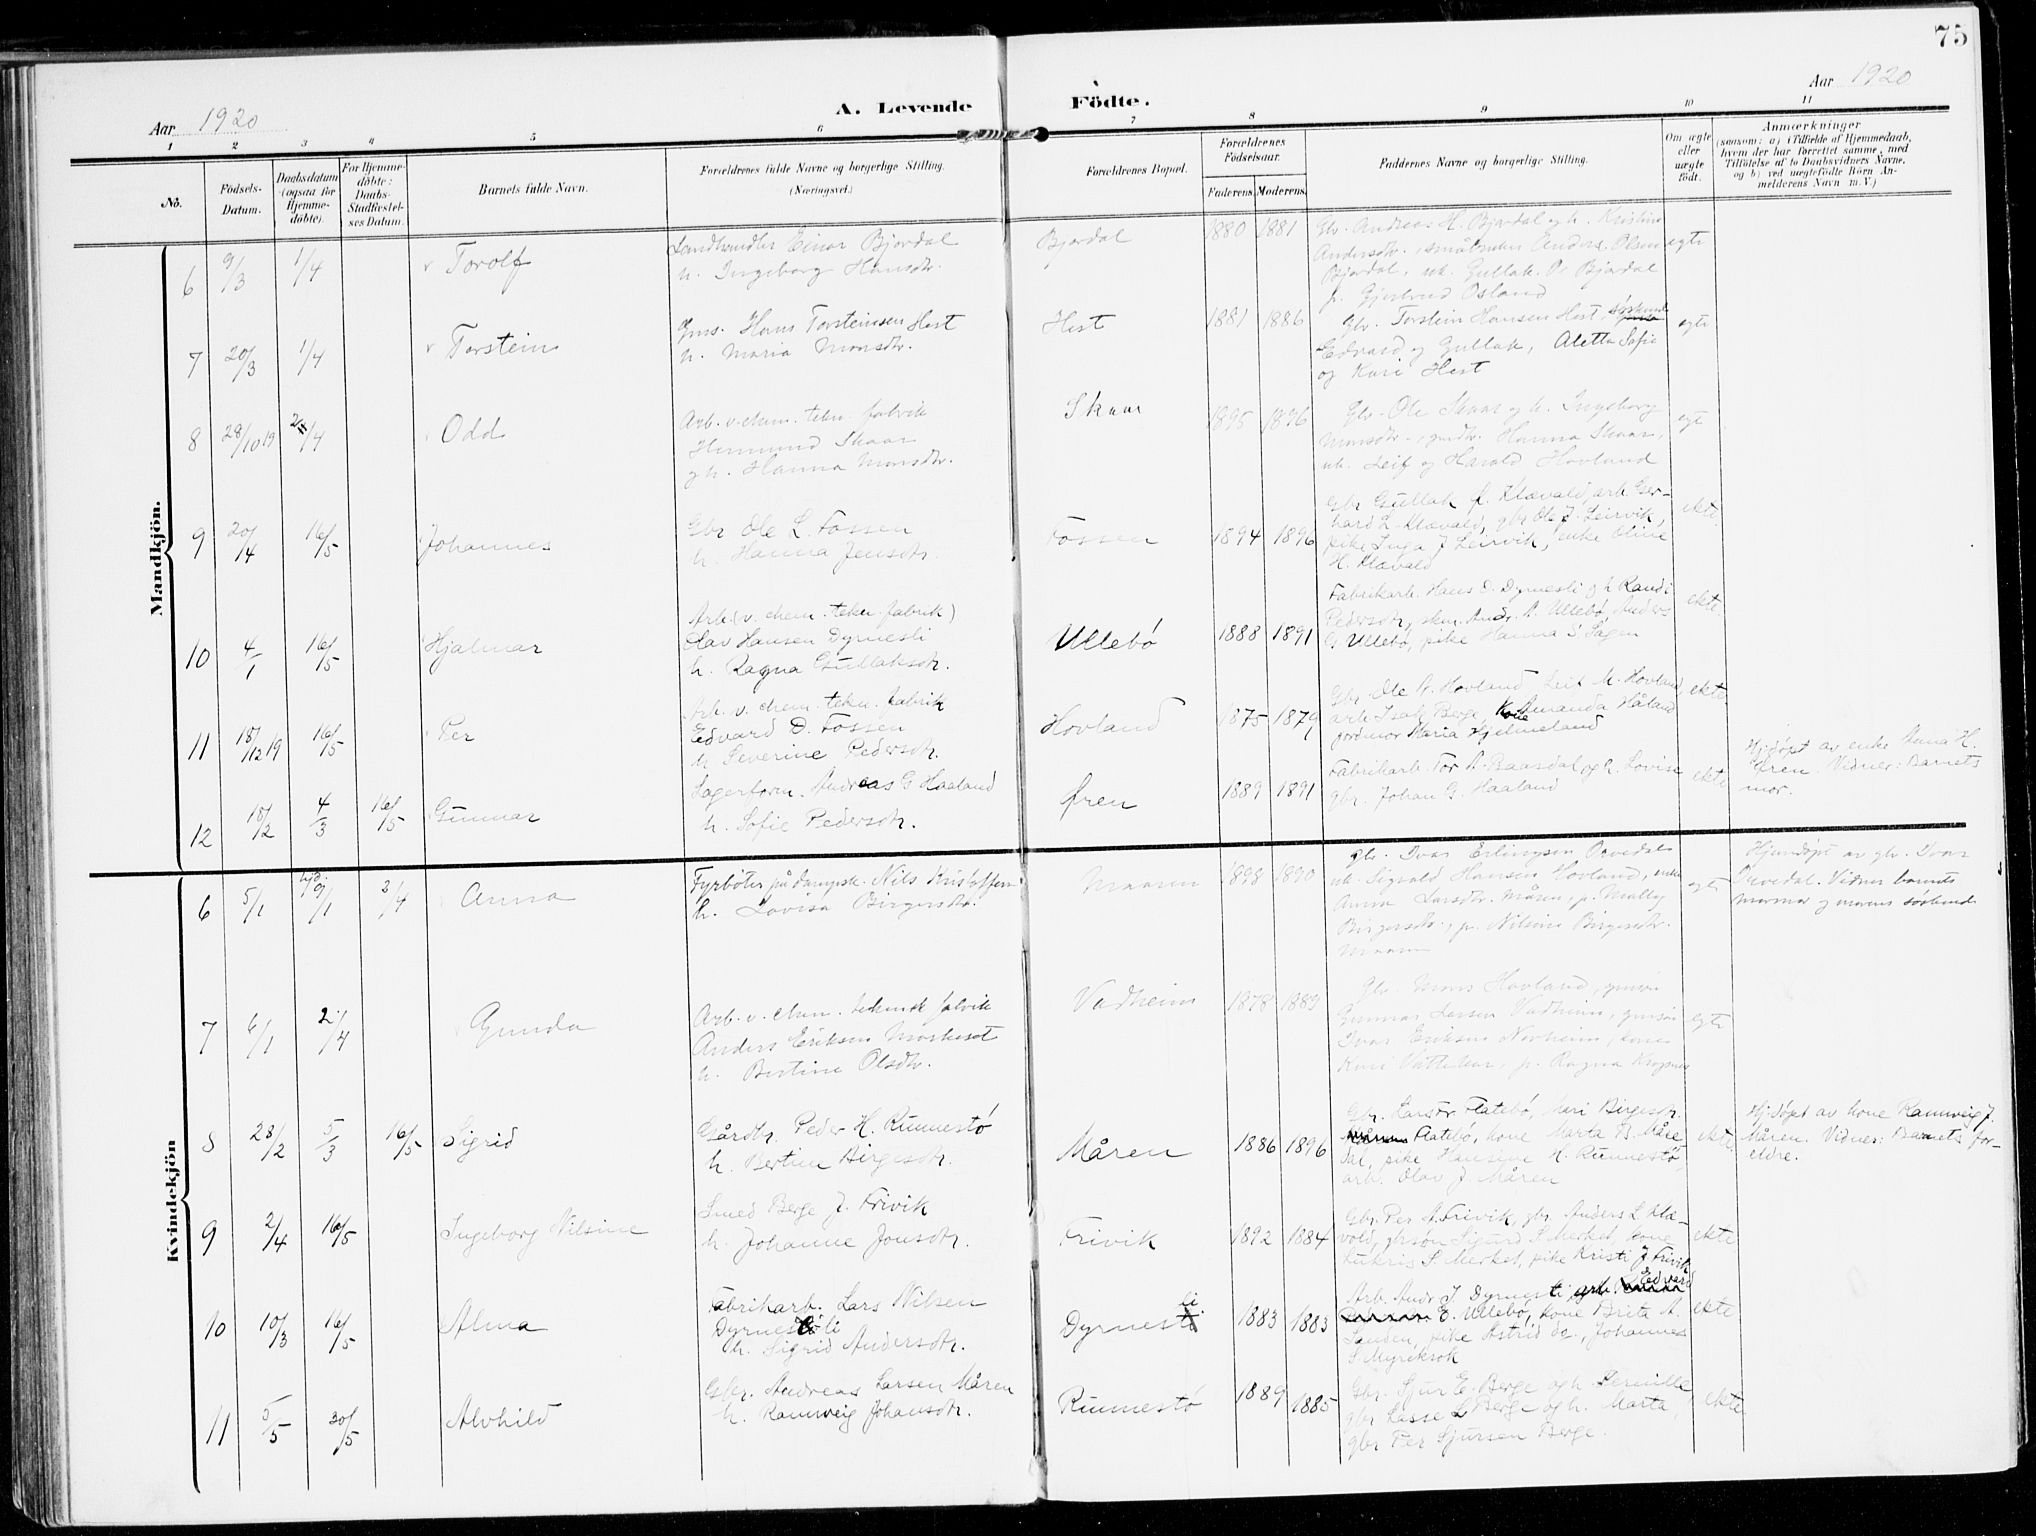 75
Aar 1920
A. Levende Födte.
Aar 1920
1 2 3 4 5 6 7 8 9 10 11
No.
Födsels-
Datum.
Daabsdatum
(ogsaa for
Hjemme-
døbte).
For Hjemme-
døbte:
Daabs-
Stadfæstel-
ses Datum.
Barnets fulde Navn.
Forældrenes fulde Navne og borgerlige Stilling.
(Næringsvei.)
Forældrenes Bopæl.
Forældrenes
Fødselsaar.
Faderens. Moderens.
Faddernes Navne og borgerlige Stilling.
Om ægte
eller
uægte
født.
Anmærkninger
(saasom: a) i Tilfælde af Hjemmedaab,
hvem der har forrettet samme, med
Tilføielse af to Daabsvidners Navne,
og b) ved uægtefødte Börn An-
melderens Navn m. V.)
Mandkjön.
6 9/3 1/4 Torolf
Landhandler Einar Bjordal
h. Ingeborg Hansdtr.
Bjordal 1880 1881
Gbr. Andreas H. Bjordal og h. Kristine
Andersdtr., Anders Olsen
Bjordal, uk. Gullak. O. Bjordal
p. Gjertrud Osland
egte
7 20/3 1/4 Torstein
Gms. Hans Torsteinsen Hest
h. Maria Monsdtr.
Hest 1881 1886
Gbr. Torstein Hansen Hest, søskende
Edvard og Gullak, Aletta Sofie
og Kari Hest
egte
8 28/10 19 /4 Odd
Arb. v. chem. tekn. fabrik
Hermund Skaar
og h. Hanna Monsdtr.
Skaar 1895 1896
Gbr. Ole Skaar og h. Ingeborg
Monsdtr., gmdtr. Hanna Skaar,
uk. Leif og Harald Hovland
egt
9 20/14 16/5 Johannes
Gbr Ole L. Fossen
h. Hanna Jensdtr.
Fossen 1894 1896
Gbr Gullak f. Klævald, arb. Ger-
hard L. Klævald, gbr Ole J. Leirvik,
pike Inga J Leirvik, enke Oline
H. Klævald
ekte
10 4/1 16/5 Hjalmar
Arb. (v. chem. tekn. fabrik)
Olav Hansen Dyrnesli
h. Ragna Gullaksdtr.
Ullebø 1888 1891
Fabrikarb. Hans D. Dyrnesli og h Randi
Pedersdtr, skm. Andr. A. Ullebø, Anders
G. Ullebø, pike Hanna S. Sagen
ekte
11 18/12 19 16/5 Per
Arb. v. chem. tekn. fabrik
Edvard D. Fossen
h. Severine Pedersdtr.
Hovland 1875 1879
Gbr. Ole A. Hovland Leif M. Hovland
arb Isak Berge, kone Amanda Håland
jordmor Maria Hjelmeland
ekte
12 18/2 4/3 16/5 Gunnar
Lagerform. Andreas G Haaland
h. Sofie Pedersdtr.
Øren 1889 1891
Fabrikarb. Tor A. Baasdal og h. Lovise
gbr. Johan G. Haaland
ekte
Hj.døpt av enke Anna H.
Øren. Vidner: Barnets
mor.
Kvindekjön
6 5/1 hjd. 9/1 2/4 Anna
Fyrbøter på dampsk. Nils Kristoffersen
h. Lovisa Birgersdtr.
Maaren 1898 1890
gbr. Ivar Erlingsen Orvedal
uk. Sigvald Hansen Hovland, enke
Anna Larsdtr. Måren, p. Mally
Birgersdtr., p. Nilsine Birgersdtr.
Maaren
egte
Hjemdøpt av gbr. Ivar
Orvedal. Vidner barnets
mormor og morens søskende
7 6/1 2/4 Gunda
Arb. v. chem. teknisk fabrik
Anders Eriksen Norheset
h. Bertine Olsdtr.
Vadheim 1878 1889
Gbr. Mons Hovland, gmsøn
Gunnar Larsen Vadheim, gmsøn
Ivar Eriksen Norheim, kone
Kari Vattekar, p. Ragna
egte
8 28/2 5/3 16/5 Sigrid
Gårdbr. Peder H. Runnestø
h. Bertine Birgesdtr.
Måren 1886 1896
Gbr. Lars Flatebø, Mari Birgesdtr.
Flatebø, kone Marta B. Måre-
dal, pike Hansine H. Runnestø,
arb. Olav J. Måren
ekte
Hj.døpt av kone Rannveig J.
Måren. Vidner: Barnets for-
eldre.
9 2/4 16/5 Ingeborg Nilsine
Smed Berge J. Frivik
h. Johanne Jonsdtr.
Frivik 1892 1884
Gbr. Per A. Frivik, gbr. Anders L Klæ-
vold, gbrsøn Sigurd S. Merket, kone
Lukris S. Merket, pike Kristi J. Frivik
ekte
10 10/3 16/5 Alma
Fabrikarb. Lars Nilsen
Dyrnesli
h. Sigrid Andersdtr.
Dyrnesli 1883 1883
Arb. Andr J Dyrnesli, arb. Edvard
E. Ullebø, kone Brita A.
Sanden, pike Astrid do., Johannes
S. Myreksok
ekte
11 5/5 30/5 Alvhild
Gbr. Andreas Larsen Måren
h. Rannveig Johansdtr.
Runnestø 1889 1885
Gbr. Sjur E. Berge og h. Pernille
gbr Lasse L Berge og h. Marta,
gbr Per Sjursen Berge.
ekte